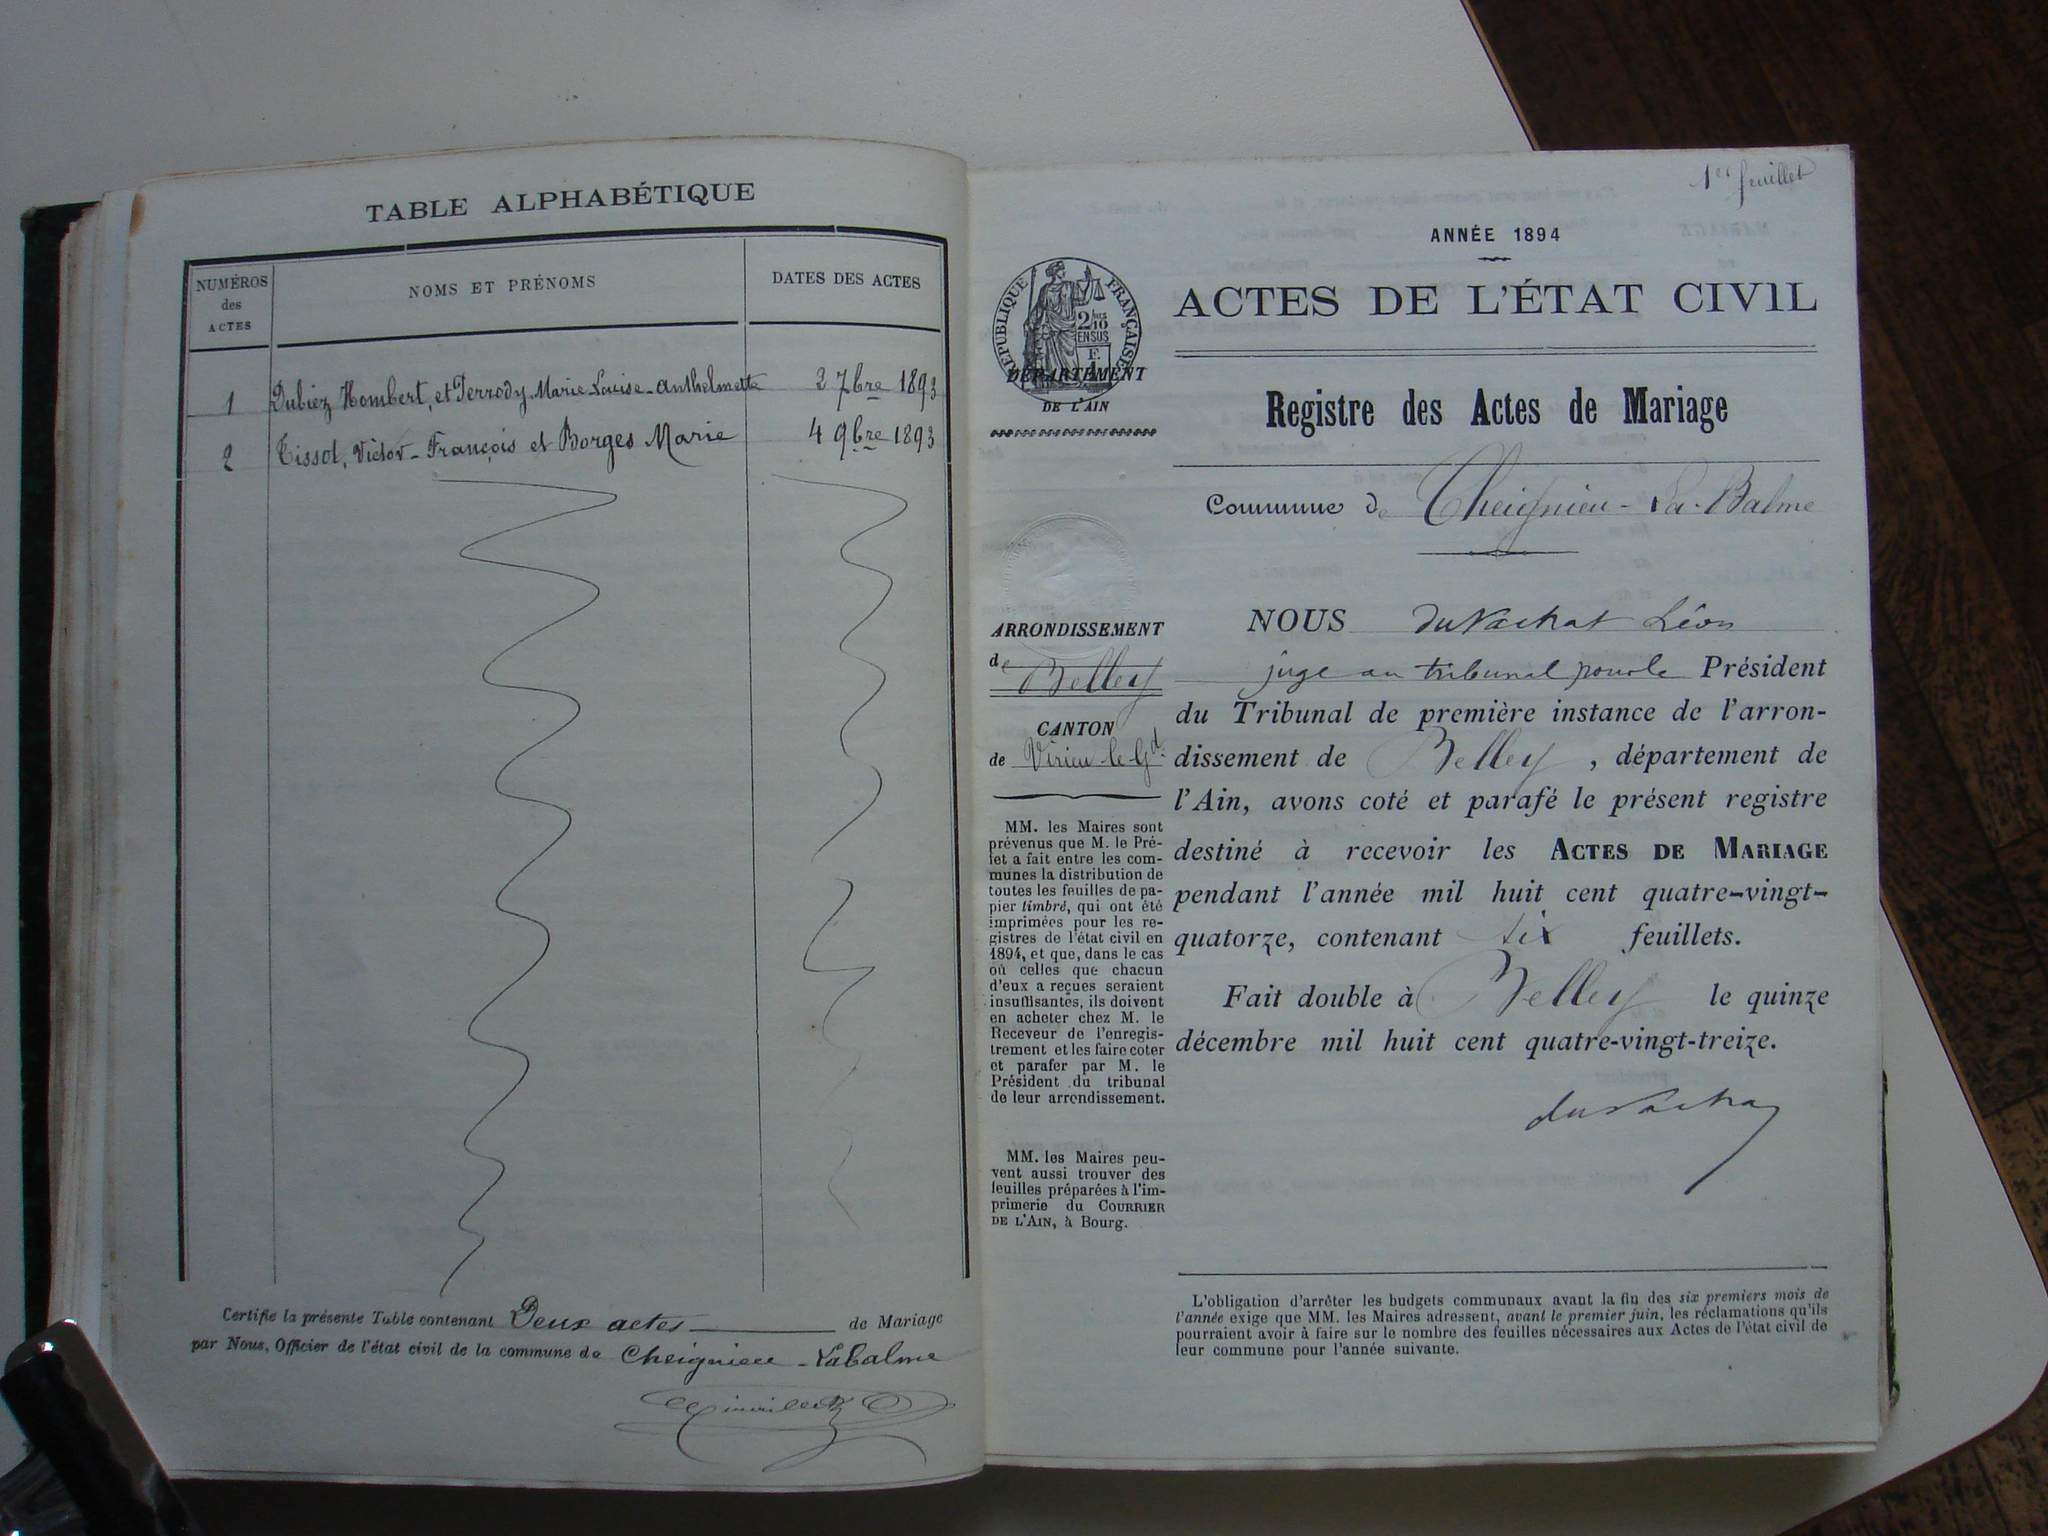 TABLE ALPHABÉTIQUE
NUMÉROS des ACTES
NOMS ET PRÉNOMS
DATES DES ACTES
1 Dubiez Hombert, et Perrody Marie-Louise-Anthelmette 2 7bre 1893
2 Tissot, Victor-François et Borges Marie 4 9bre 1893
Certifie la présente Table contenant Deux actes de Mariage
par Nous, Officier de l'état civil de la commune de Cheignieu-Labalme
1er feuillet
ANNÉE 1894
RÉPUBLIQUE FRANÇAISE
2/10 EN SUS
F. 1
DÉPARTEMENT
DE L'AIN
ACTES DE L'ÉTAT CIVIL
Registre des Actes de Mariage
Commune de Cheignieu-La-Balme
ARRONDISSEMENT
de Belley
CANTON
de Virieu-le-Gd
MM. les Maires sont
prévenus que M. le Pré-
fet a fait entre les com-
munes la distribution de
toutes les feuilles de pa-
pier timbré, qui ont été
imprimées pour les re-
gistres de l'état civil en
1894, et que, dans le cas
où celles que chacun
d'eux a reçues seraient
insuffisantes, ils doivent
en acheter chez M. le
Receveur de l'enregis-
trement et les faire coter
et parafer par M. le
Président du tribunal
de leur arrondissement.
MM. les Maires peu-
vent aussi trouver des
feuilles préparées à l'im-
primerie du COURRIER
DE L'AIN, à Bourg.
NOUS duVachat Léon
juge au tribunal pour le Président
du Tribunal de première instance de l'arron-
dissement de Belley, département de
l'Ain, avons coté et parafé le présent registre
destiné à recevoir les ACTES DE MARIAGE
pendant l'année mil huit cent quatre-vingt-
quatorze, contenant six feuillets.
Fait double à Belley le quinze
décembre mil huit cent quatre-vingt-treize.
duVachat
L'obligation d'arrêter les budgets communaux avant la fin des six premiers mois de
l'année exige que MM. les Maires adressent, avant le premier juin, les réclamations qu'ils
pourraient avoir à faire sur le nombre des feuilles nécessaires aux Actes de l'état civil de
leur commune pour l'année suivante.